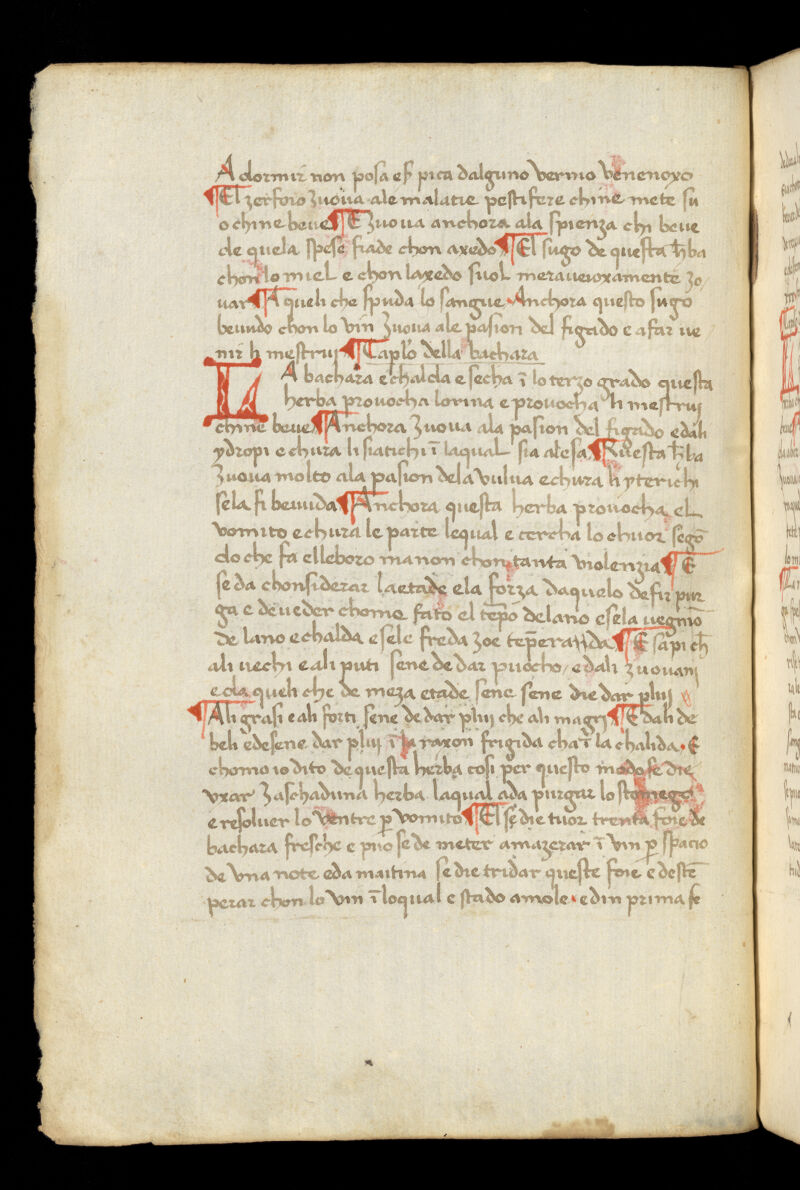 A dormir non posa eſſ pica dalguno vermo venenoxo
¶ El zerfoio zuova ale malatie pestifere chine mete su
o chine beve ¶ E zuova anchora ala spienza chi beve
de quela spese fiade chon axedo ¶ El sugo de questa hba
chon lo miel e chon laxedo suol meraveioxamente zo
var ¶ A queli che spuda lo sangue Anchora questo sugo
bevudo chon lo vin zuova ale pasion del figado e afar ve
nir li mestruj ¶ Caplo della bachara
LA bachara e chalda e secha ī lo terzo grado questa
herba provocha lorina e provocha li mestruj
chine beve ¶ Anchora zuova ala pasion del figado edali
ydropi e chura li siatichi ī laqual sia alesa ¶ Questa hba
zuova molto ala pasion dela vulva e chura li yterichi
sela fi bevuda ¶ Anchora questa herba provocha el
vomito e chura le parte lequal e cercha lo chuor segō
do che fa elleboro ma non chon tanta violenzia ¶ E
se da chonsiderar la etade e la forza daquelo de fir pur
ga e de veder chomo fato el tēpo delano e sela vegniō
de lano e chalda e sele freda zoe tēperada ¶ E sapi ch
ali vechi e ali puti sene de dar puocho / e dali zuovanj
e da queli che de meza etade sene sene die dar pluj
¶ Ali grasi e ali forti sene de dar pluj che ali magrj ¶ E dali de
beli e de sene dar pluj ī la raxon frigida cha ī la chalida · E
chomo io dito de questa herba cosi per questo modo se die
vxar zaschaduna herba laqual ada purgar lo stomego
e resolver lo ventre p vomito ¶ El sē die tuor trenta foie de
bachara fresche e puo se de meter amazerar ī vin p spacio
de vna note e da maitina se die tridar queste foie e destē
perar chon lo vin ī loqual e stado amole · e din prima se